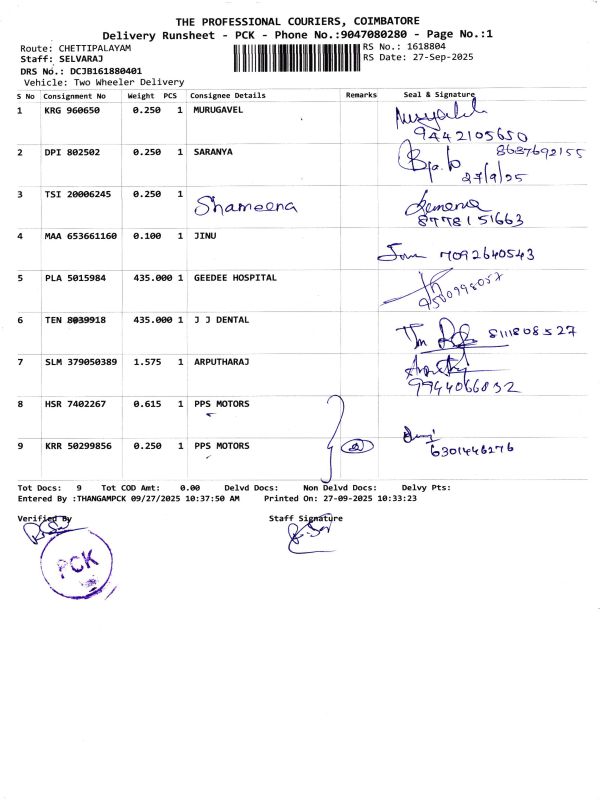 THE PROFESSIONAL COURIERS, COIMBATORE
Delivery Runsheet - PCK - Phone No.:9047080280 - Page No.:1
Route: CHETTIPALAYAM RS No.: 1618804
Staff: SELVARAJ RS Date: 27-Sep-2025
DRS No.: DCJB161880401
Vehicle: Two Wheeler Delivery
S No Consignment No Weight PCS Consignee Details Remarks Seal & Signature
1 KRG 960650 0.250 1 MURUGAVEL
9442105650
2 DPI 802502 0.250 1 SARANYA 8637692155
27/9/25
3 TSI 20006245 0.250 1 Shameena
8778151663
4 MAA 653661160 0.100 1 JINU
7092640543
5 PLA 5015984 435.000 1 GEEDEE HOSPITAL
9500998057
6 TEN 8039918 435.000 1 J J DENTAL
8111808527
7 SLM 379050389 1.575 1 ARPUTHARAJ
9944066832
8 HSR 7402267 0.615 1 PPS MOTORS
9 KRR 50299856 0.250 1 PPS MOTORS 6301446276
Tot Docs: 9 Tot COD Amt: 0.00 Delvd Docs: Non Delvd Docs: Delvy Pts:
Entered By :THANGAMPCK 09/27/2025 10:37:50 AM Printed On: 27-09-2025 10:33:23
Verified By Staff Signature
PCK